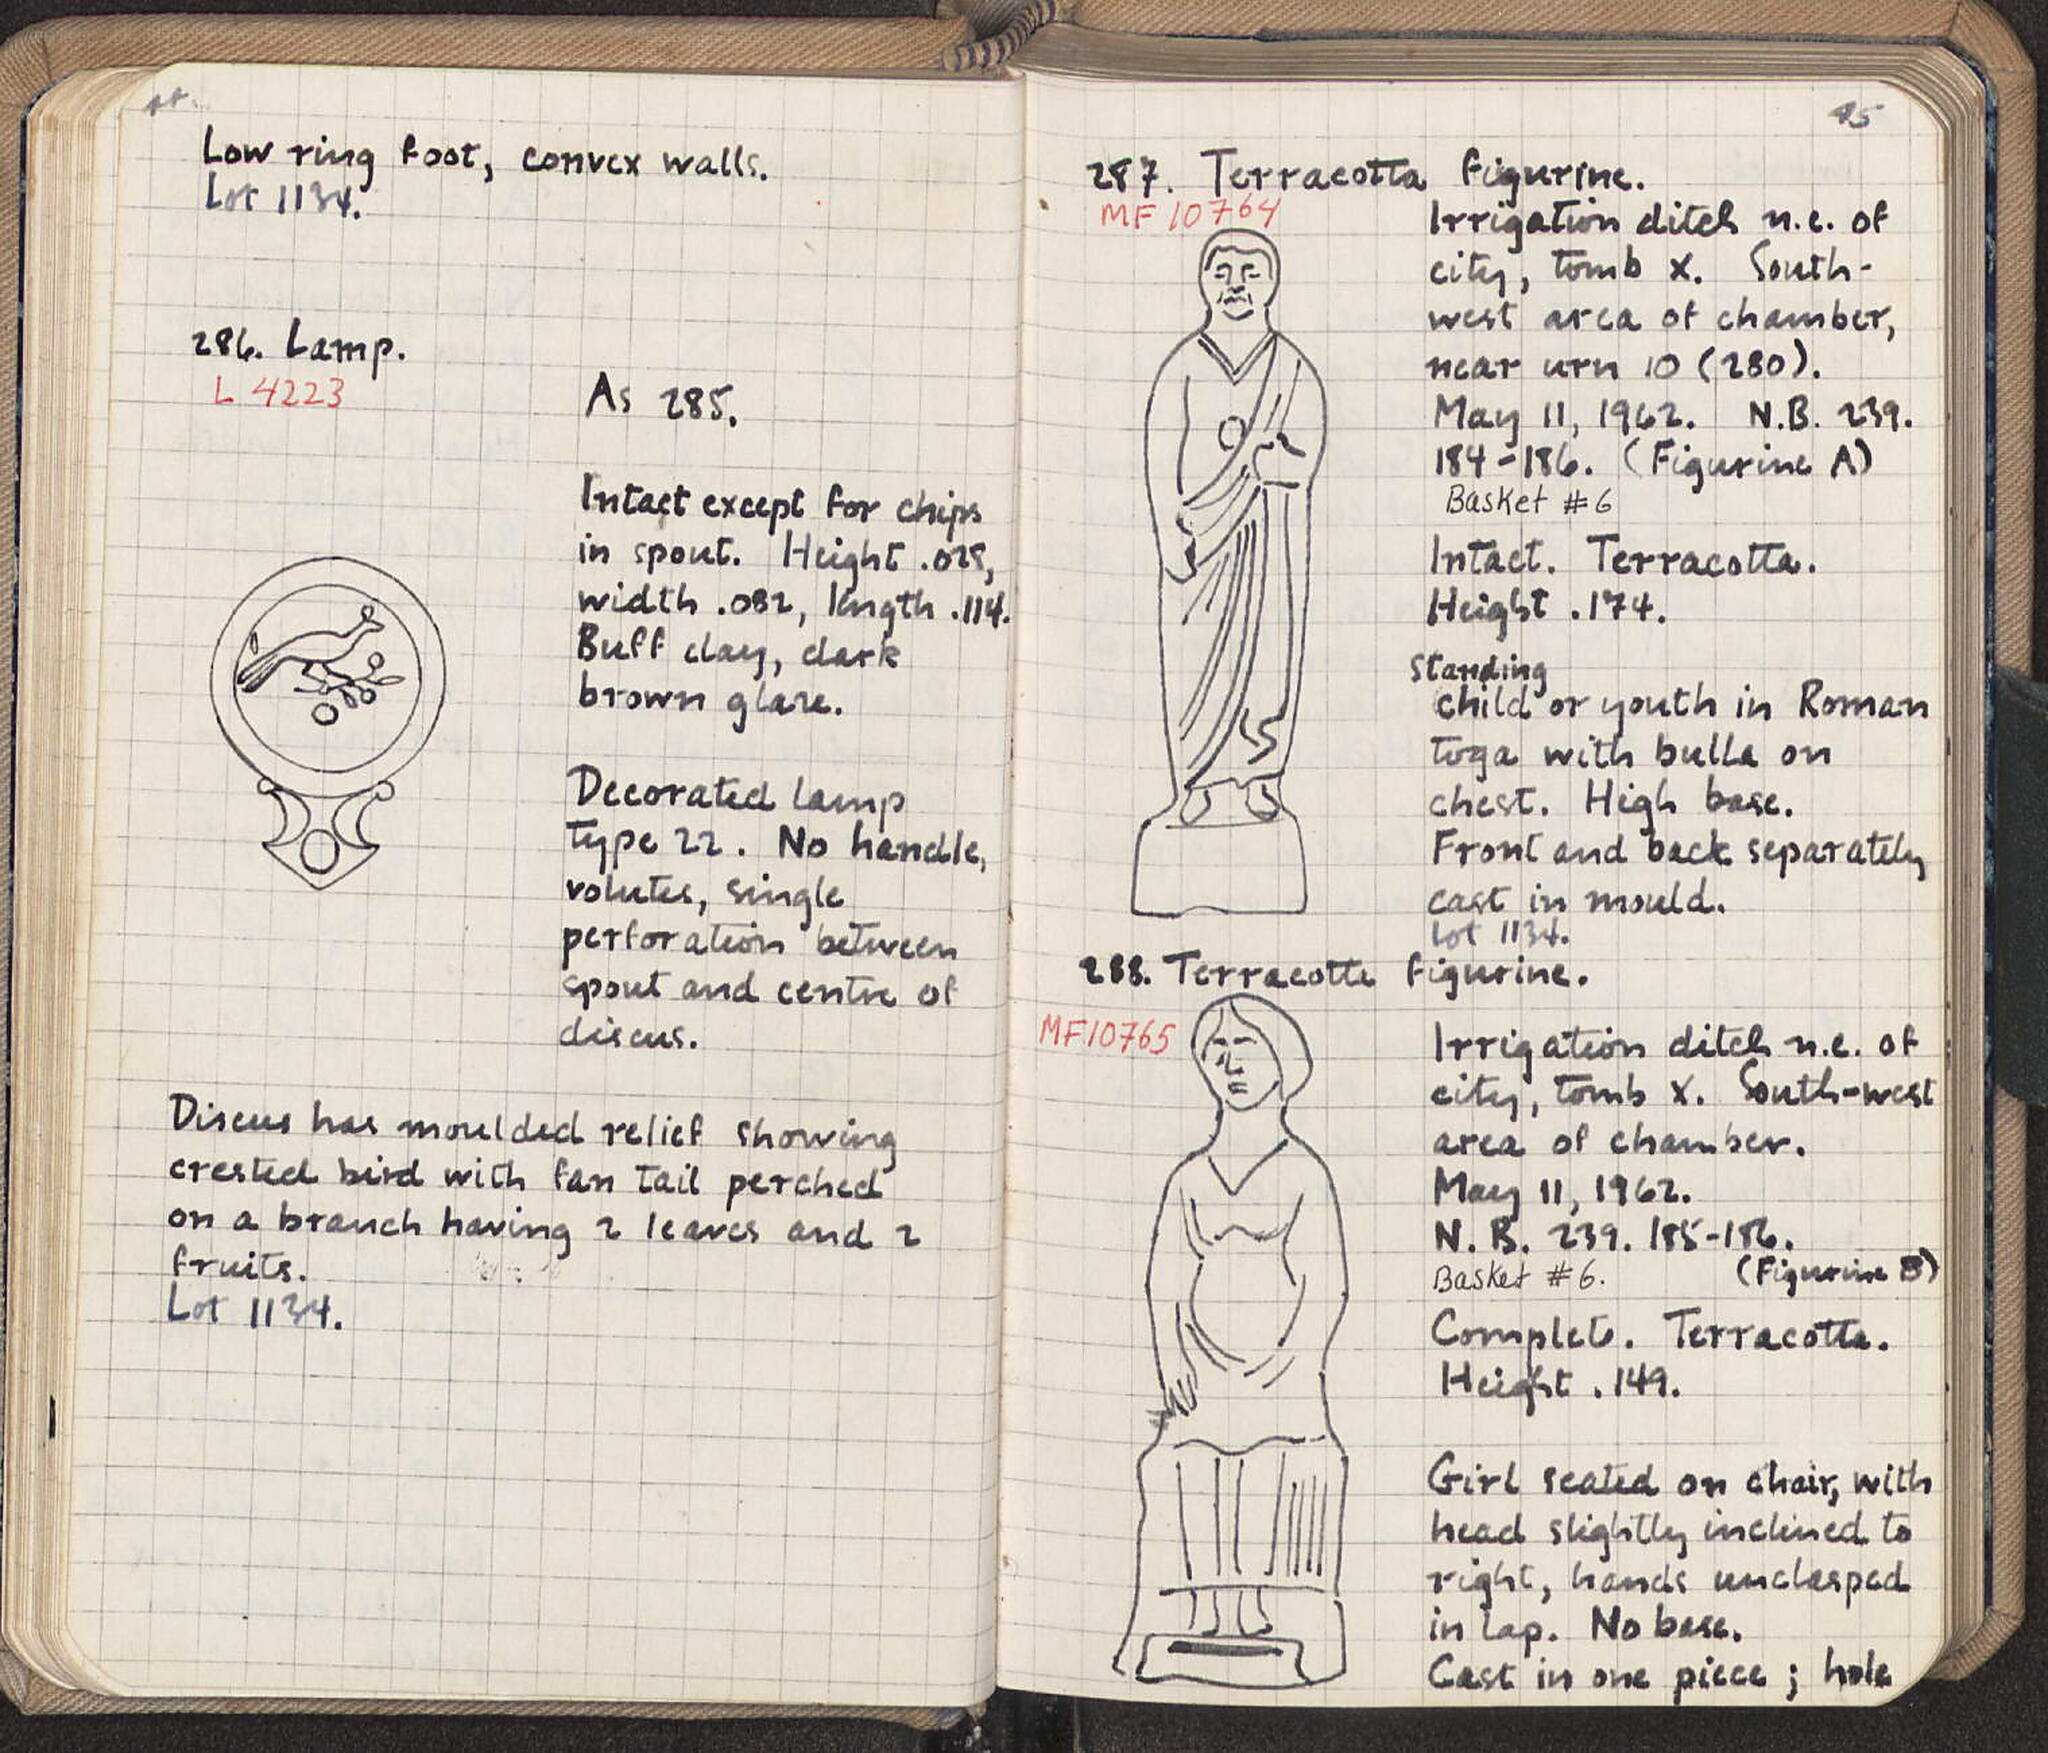 44
Low ring foot, convex walls.
Lot 1134.
286. Lamp.
L 4223
As 285.
Intact except for chips
in spout. Height .028,
width .082, length .114.
Buff clay, dark
brown glaze.
Decorated lamp
type 22. No handle,
volutes, single
perforation between
spout and centre of
discus.
Discus has moulded relief showing
crested bird with fan tail perched
on a branch having 2 leaves and 2
fruits.
Lot 1134.
45
287. Terracotta figurine.
MF 10764
Irrigation ditch n.e. of
city, tomb X. South-
west area of chamber,
near urn 10 (280).
May 11, 1962. N.B. 239.
184-186. (Figurine A)
Basket #6
Intact. Terracotta.
Height .174.
Standing
child or youth in Roman
toga with bulla on
chest. High base.
Front and back separately
cast in mould.
Lot 1134.
288. Terracotta figurine.
MF10765
Irrigation ditch n.e. of
city, tomb X. South-west
area of chamber.
May 11, 1962.
N.B. 239. 185-186.
Basket #6. (Figurine B)
Complete. Terracotta.
Height .149.
Girl seated on chair, with
head slightly inclined to
right, hands unclasped
in lap. No base.
Cast in one piece; hole